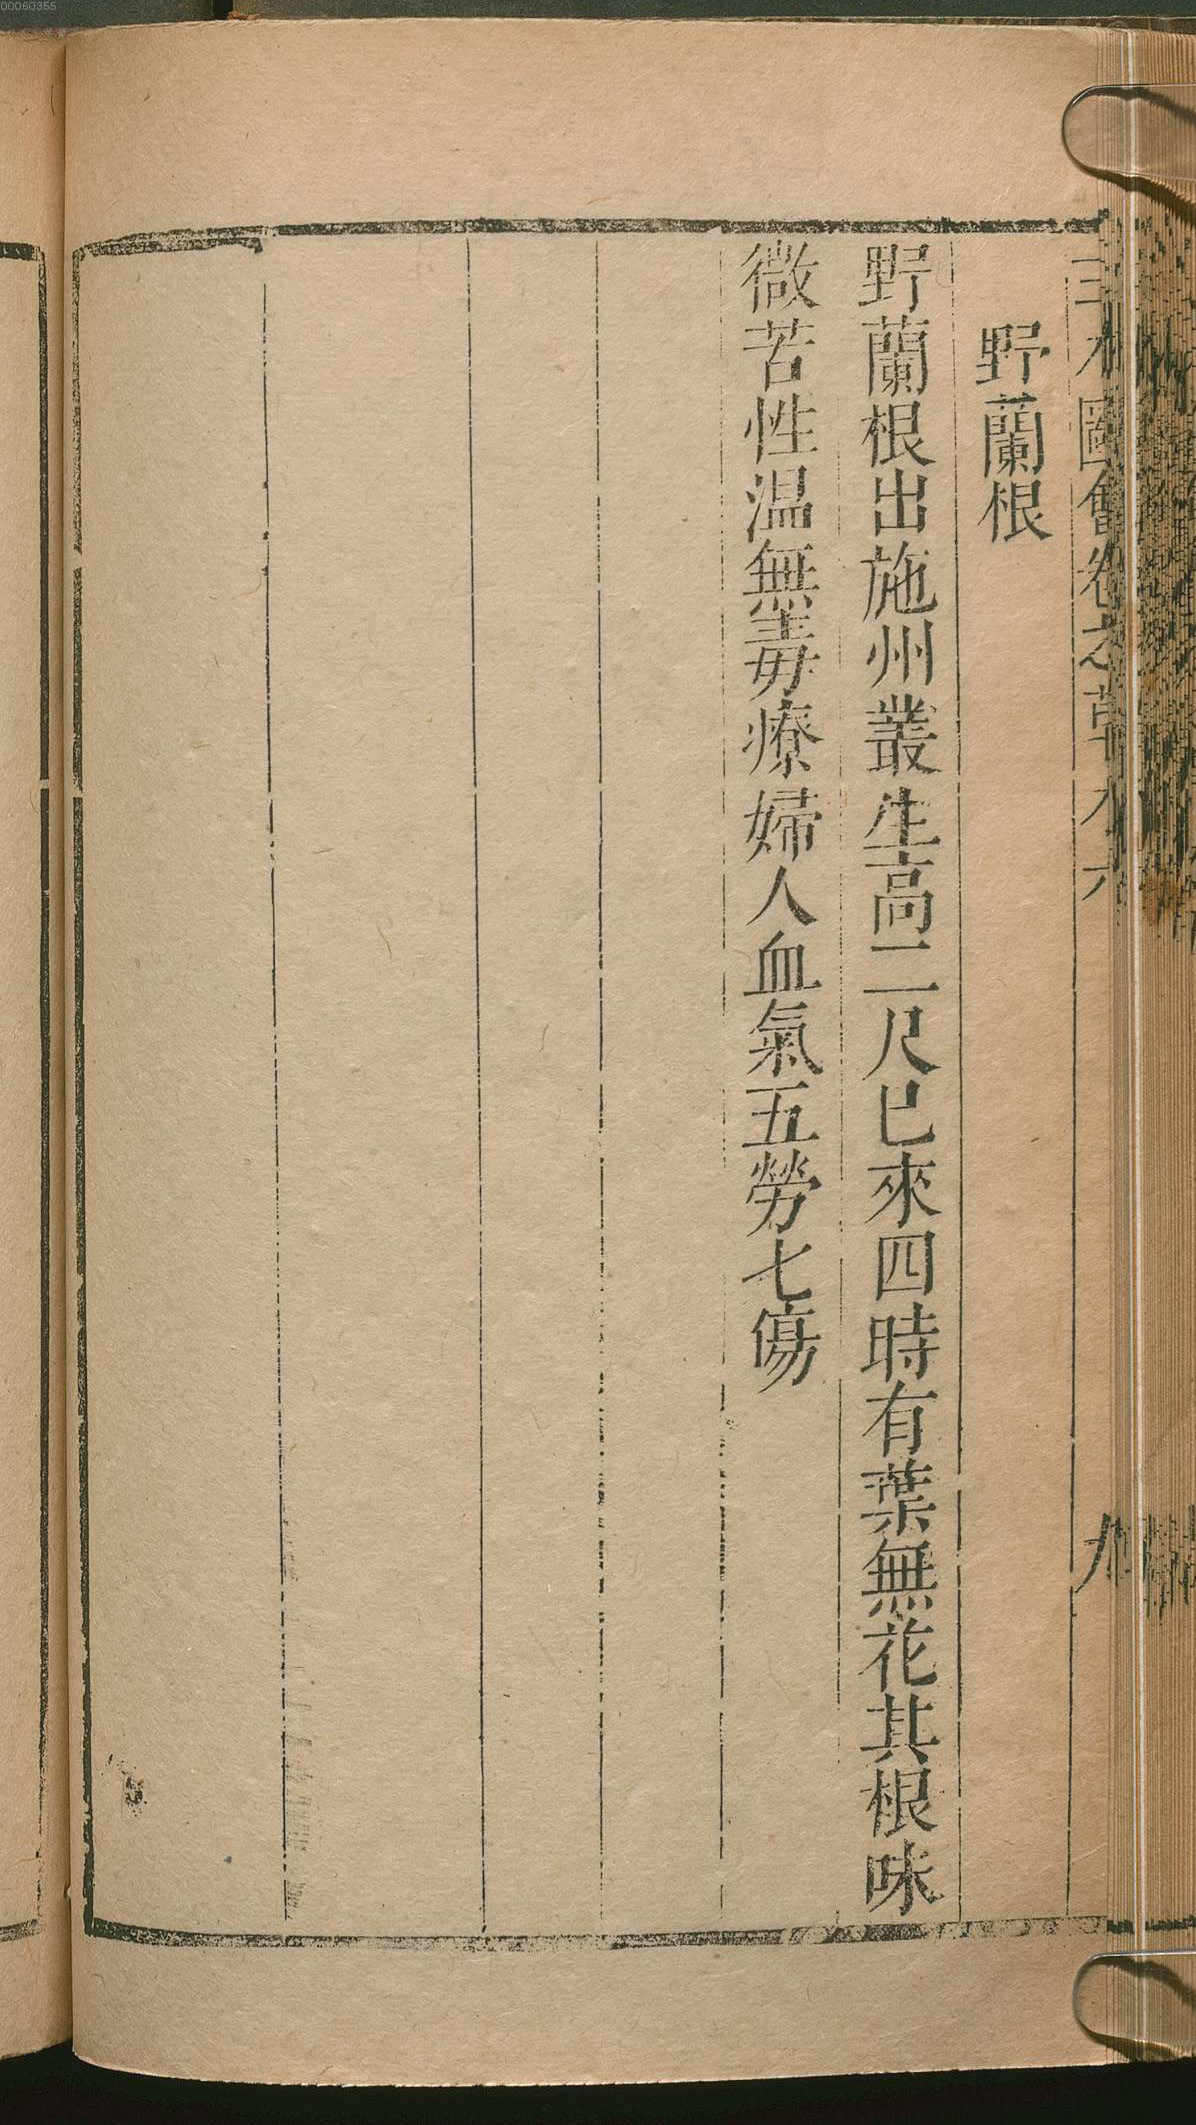 00060355
三才圖會卷之草木六
九
野蘭根
野蘭根出施州叢生高二尺巳來四時有葉無花其根味
微苦性温無毒療婦人血氣五勞七傷